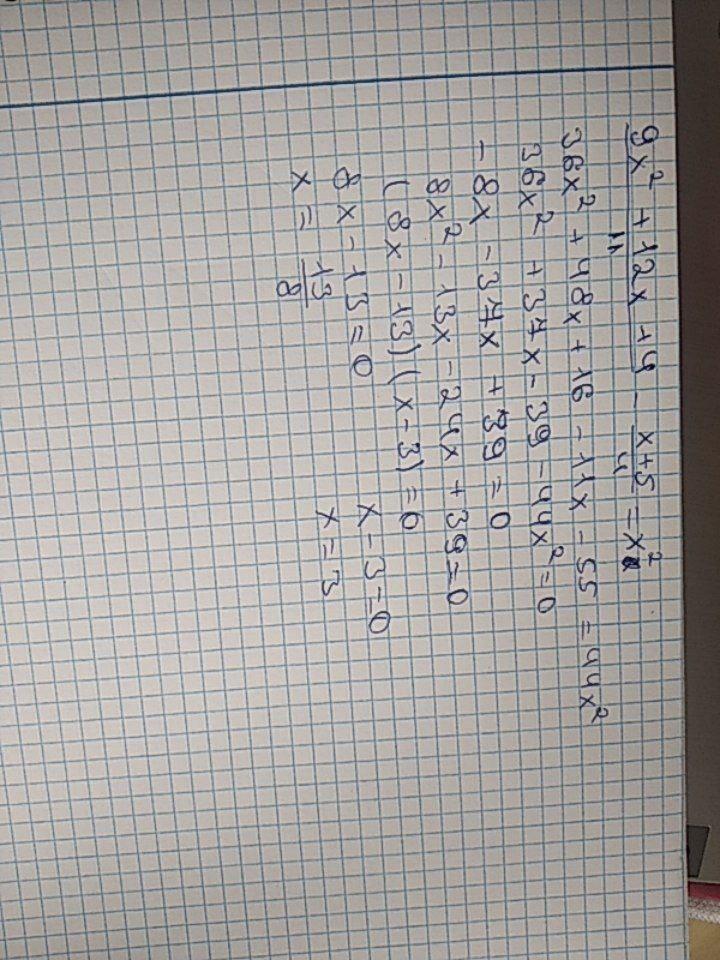 9x² + 12x + 4 / 11 - x + 5 / 4 = x²
36x² + 48x + 16 - 11x - 55 = 44x²
36x² + 37x - 39 - 44x² = 0
- 8x - 37x + 39 = 0
8x² - 13x - 24x + 39 = 0
(8x - 13)(x - 3) = 0
8x - 13 = 0 x - 3 = 0
x = 13/8 x = 3